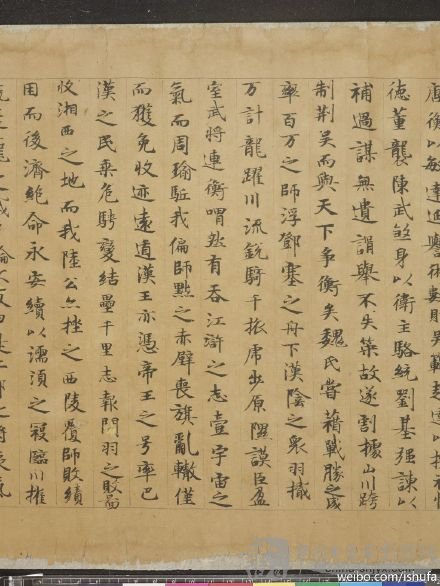 衡以敏達延譽術數則吳範趙達以
德董襲陳武煞身以衛主駱統劉基强諫以
補過謀無遺諝舉不失策故遂割據山川跨
制荆吳而與天下爭衡矣魏氏嘗藉戰勝之威
率百万之師浮鄧塞之舟下漢陰之衆羽檝
万計龍躍川流銳騎千旅虎步原隰謨臣盈
室武将連衡喟然有吞江滸之志壹宇宙之
氣而周瑜駈我偏師黜之赤壁喪旗亂轍僅
而獲免收迹遠遁漢王亦憑帝王之号率巴
漢之民乘危騁變結壘千里志報関羽之敗啚
收湘西之地而我陸公亦挫之西陵覆師敗績
困而後濟絶命永安續以濡須之寇臨川摧
weibo.com/ishufa